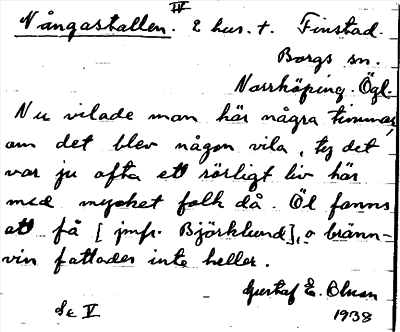 IV
Vångastallen. 2 hus. t. Finstad.
Borgs sn.
Norrköping. Ögl.
Nu vilade man här några timmar,
om det blev någon vila, ty det
var ju ofta ett rörligt liv här
med mycket folk då. Öl fanns
att få [jmfr. Björklund], o bränn-
vin fattades inte heller.
Gustaf E. Olsson
Se V 1938